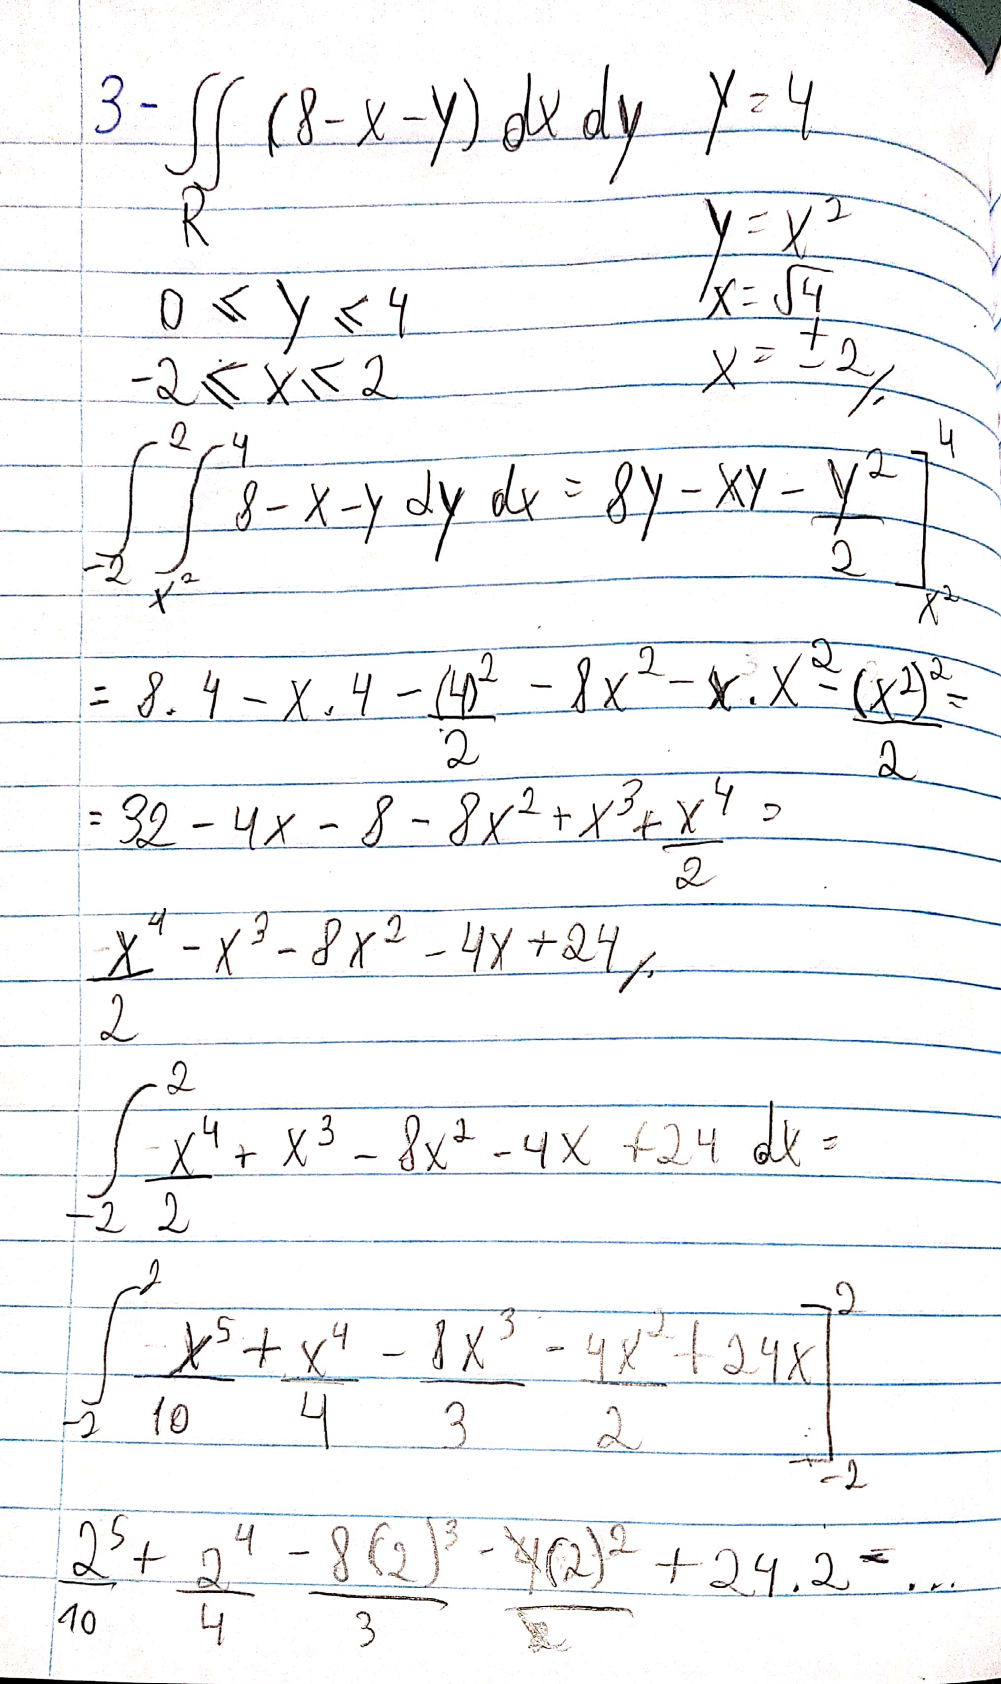 3- ∬ (8-x-y) dx dy   y=4
R
y=x²
0 ≤ y ≤ 4   x=√4
-2 ≤ x ≤ 2   x=±2//.
∫_{-2}^{2} ∫_{x²}^{4} 8-x-y dy dx = 8y - xy - y²/2 ]_{x²}^{4}
= 8.4 - x.4 - (4)²/2 - 8x² - x.x² - (x²)²/2 =
= 32 - 4x - 8 - 8x² + x³ + x⁴/2 =
-x⁴/2 - x³ - 8x² - 4x + 24//.
∫_{-2}^{2} -x⁴/2 + x³ - 8x² - 4x + 24 dx =
∫_{-2}^{2} -x⁵/10 + x⁴/4 - 8x³/3 - 4x²/2 + 24x ]_{-2}^{2}
2⁵/10 + 2⁴/4 - 8(2)³/3 - 4(2)²/2 + 24.2 = ...